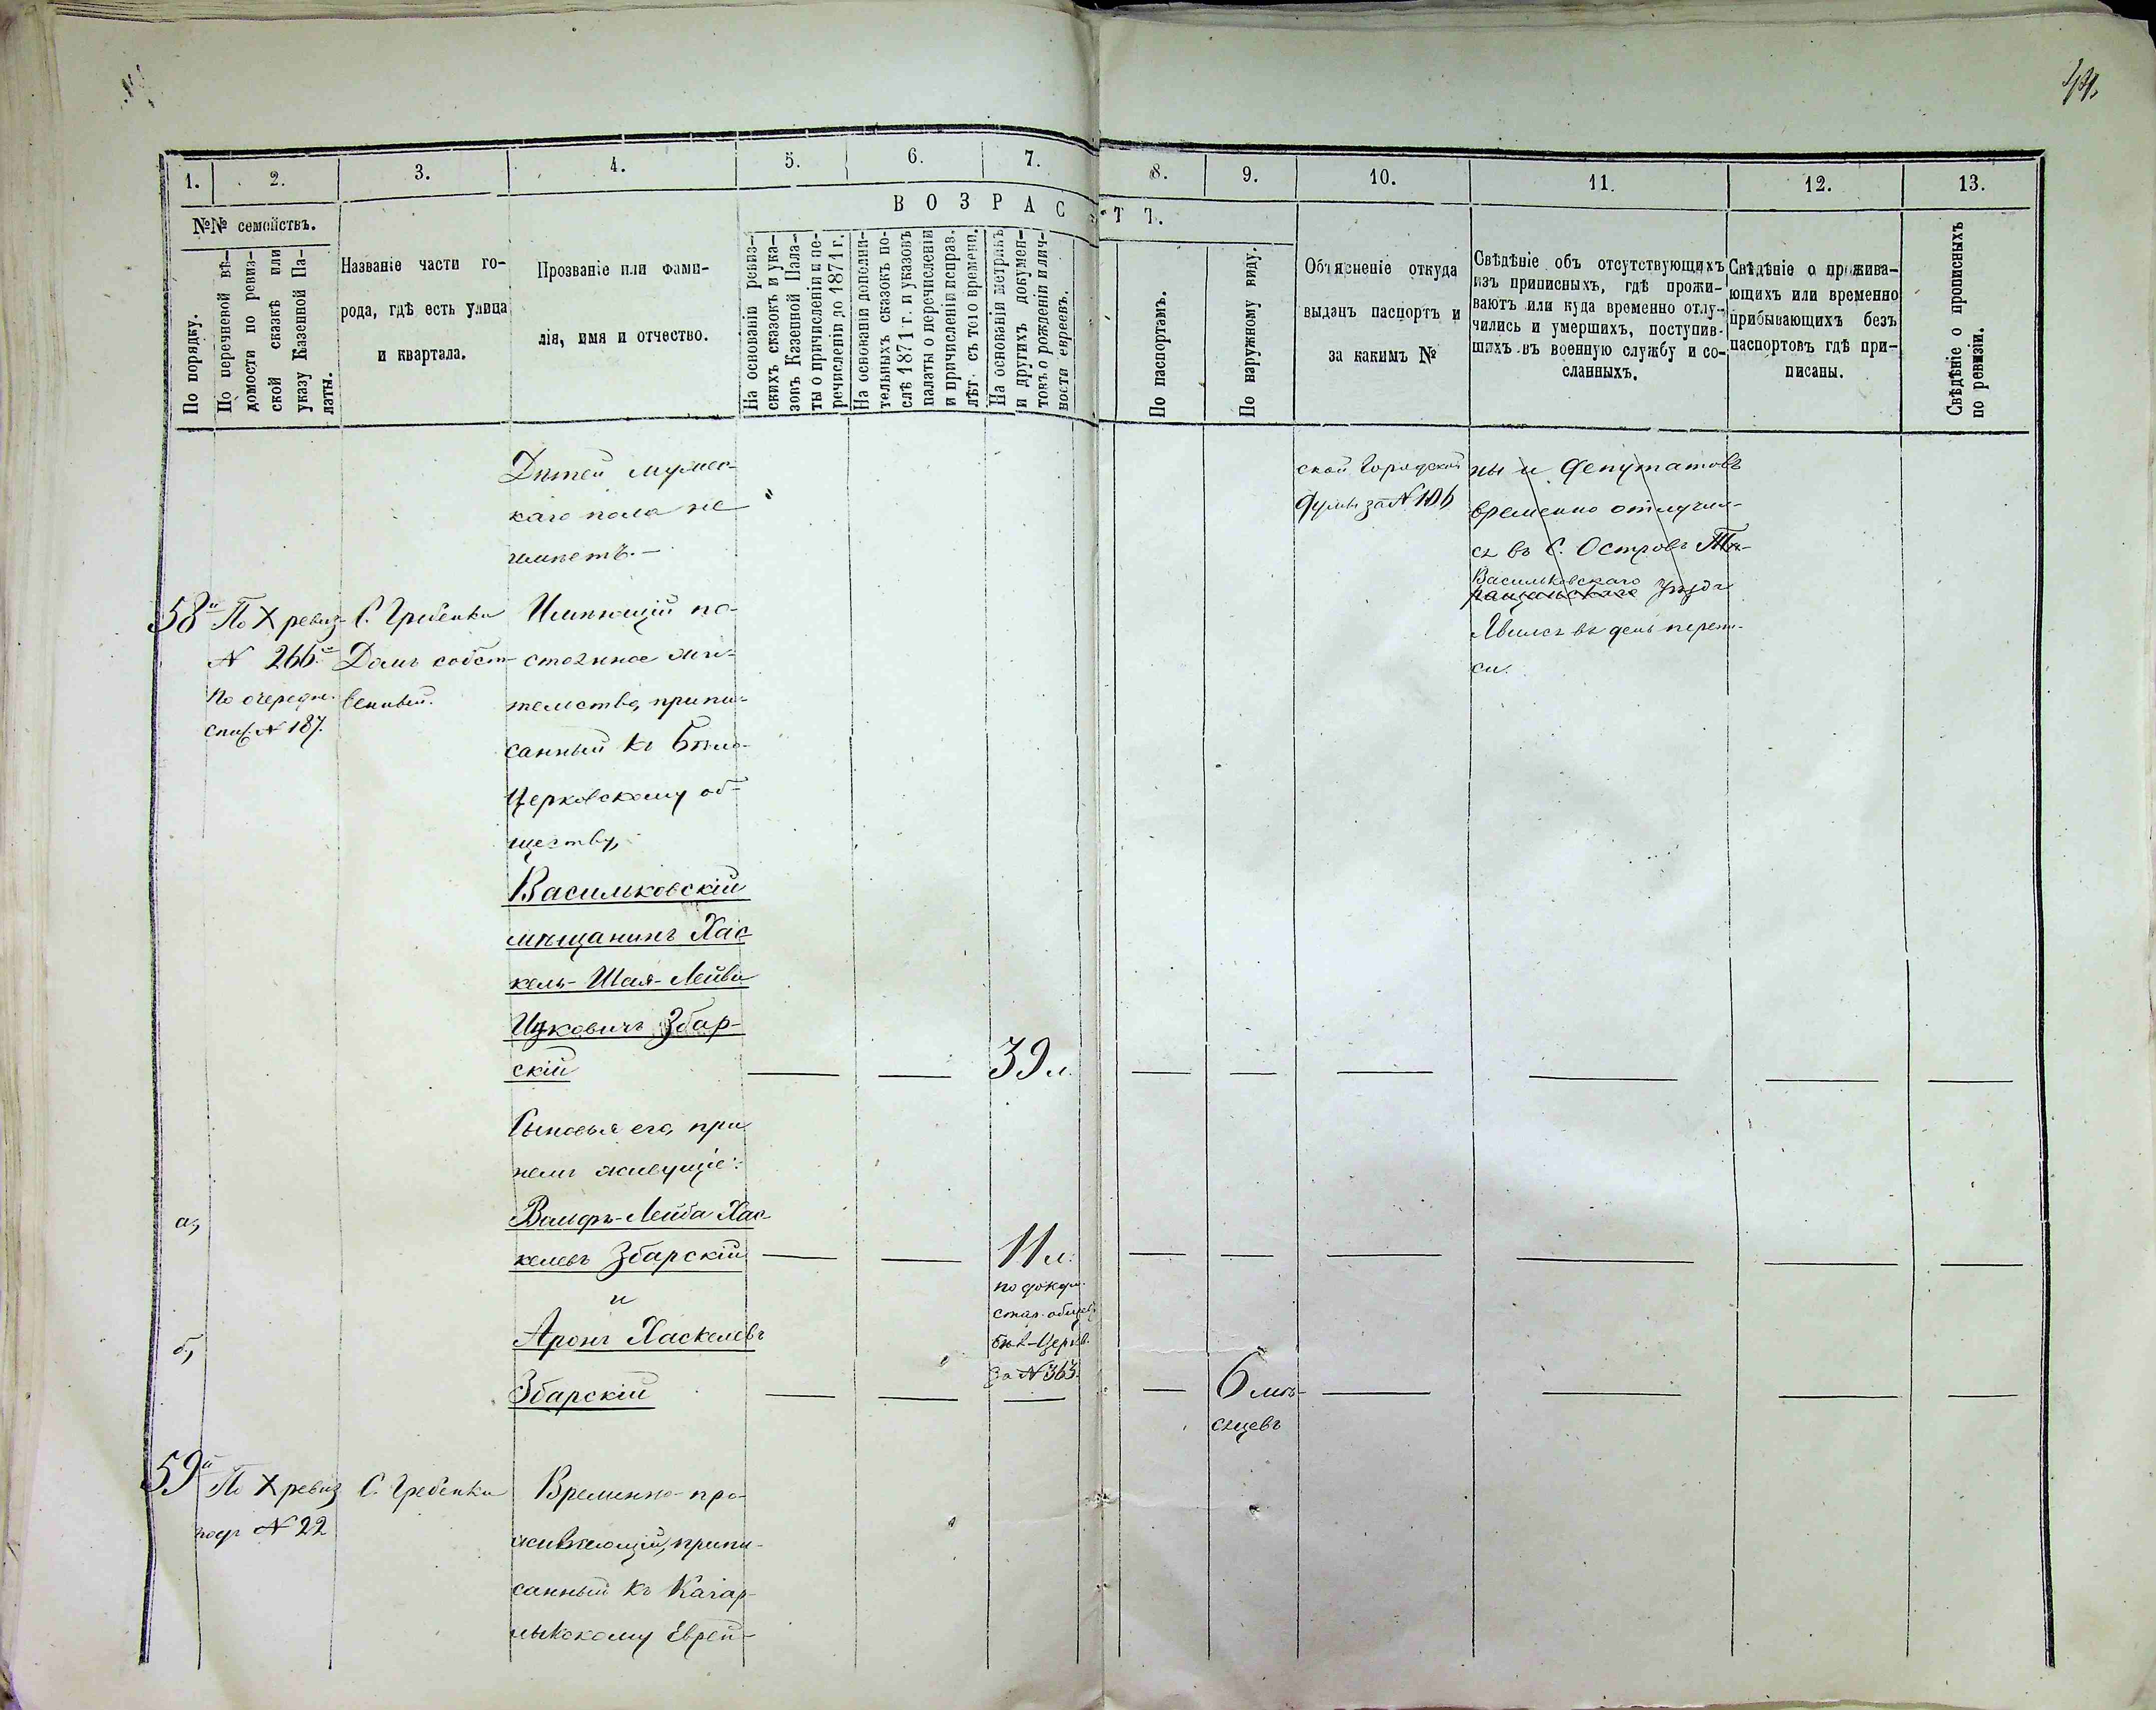 1.
2.
3.
4.
5.
6.
7.
8.
9.
10.
11.
12.
13.
№№ семействъ.
ВОЗРАСТЪ.
По порядку.
По перечневой вѣ-
домости по ревиз-
ской сказкѣ или
указу Казенной Па-
латы.
Названіе части го-
рода, гдѣ есть улица
и квартала.
Прозваніе или фами-
лія, имя и отчество.
На основаніи ревиз-
скихъ сказокъ и ука-
зовъ Казенной Пала-
ты о причисленіи и пе-
речисленіи до 1871 г.
На основаніи дополни-
тельныхъ сказокъ по-
слѣ 1871 г. и указовъ
палаты о перечисленіи
и причисленіи исправ.
лѣт. съ того времени.
На основаніи метрикъ
и другихъ докумен-
товъ о рожденіи и лич-
ности евреевъ.
По паспортамъ.
По наружному виду.
Объясненіе откуда
выданъ паспортъ и
за какимъ №
Свѣдѣніе объ отсутствующихъ
изъ приписныхъ, гдѣ прожи-
ваютъ или куда временно отлу-
чились и умершихъ, поступив-
шихъ въ военную службу и со-
сланныхъ.
Свѣдѣніе о прожива-
ющихъ или временно
прибывающихъ безъ
паспортовъ гдѣ при-
писаны.
Свѣдѣніе о прописныхъ
по ревизіи.
Дѣтей мужес-
каго пола не
имѣетъ.—
ской Городской
Думы за № 106
ны и Депутатовъ
временно отлучил-
ся въ С. Островъ
Васильковскаго
Уѣзда
Явился въ день перепи-
си.
58й По X ревиз. С. Гребенка Имѣющій по-
№ 266й Домъ собст- стоянное жи-
По очередн. венный. тельство, припи-
спис. № 187. санный къ Бѣло-
Церковскому об-
ществу,
Васильковскій
мѣщанинъ Хас-
кель-Шая-Лейба
Ицковичъ Збар-
скій — — 39 л. — — — — — —
Сыновья его, при
немъ живущіе:
а, Вольфъ-Лейба Хас-
келевъ Збарскій — — 11 л. — — — — — —
и
по докум.
стар. общев.
Бѣл-Церков.
за № 363.
б, Аронъ Хаскелевъ
Збарскій — — — — 6 мѣ- — — — —
сяцевъ
59й По X ревиз С. Гребенка Временно-про-
подъ № 22 живающій, припи-
санный къ Кагар-
лыкскому Еврей-